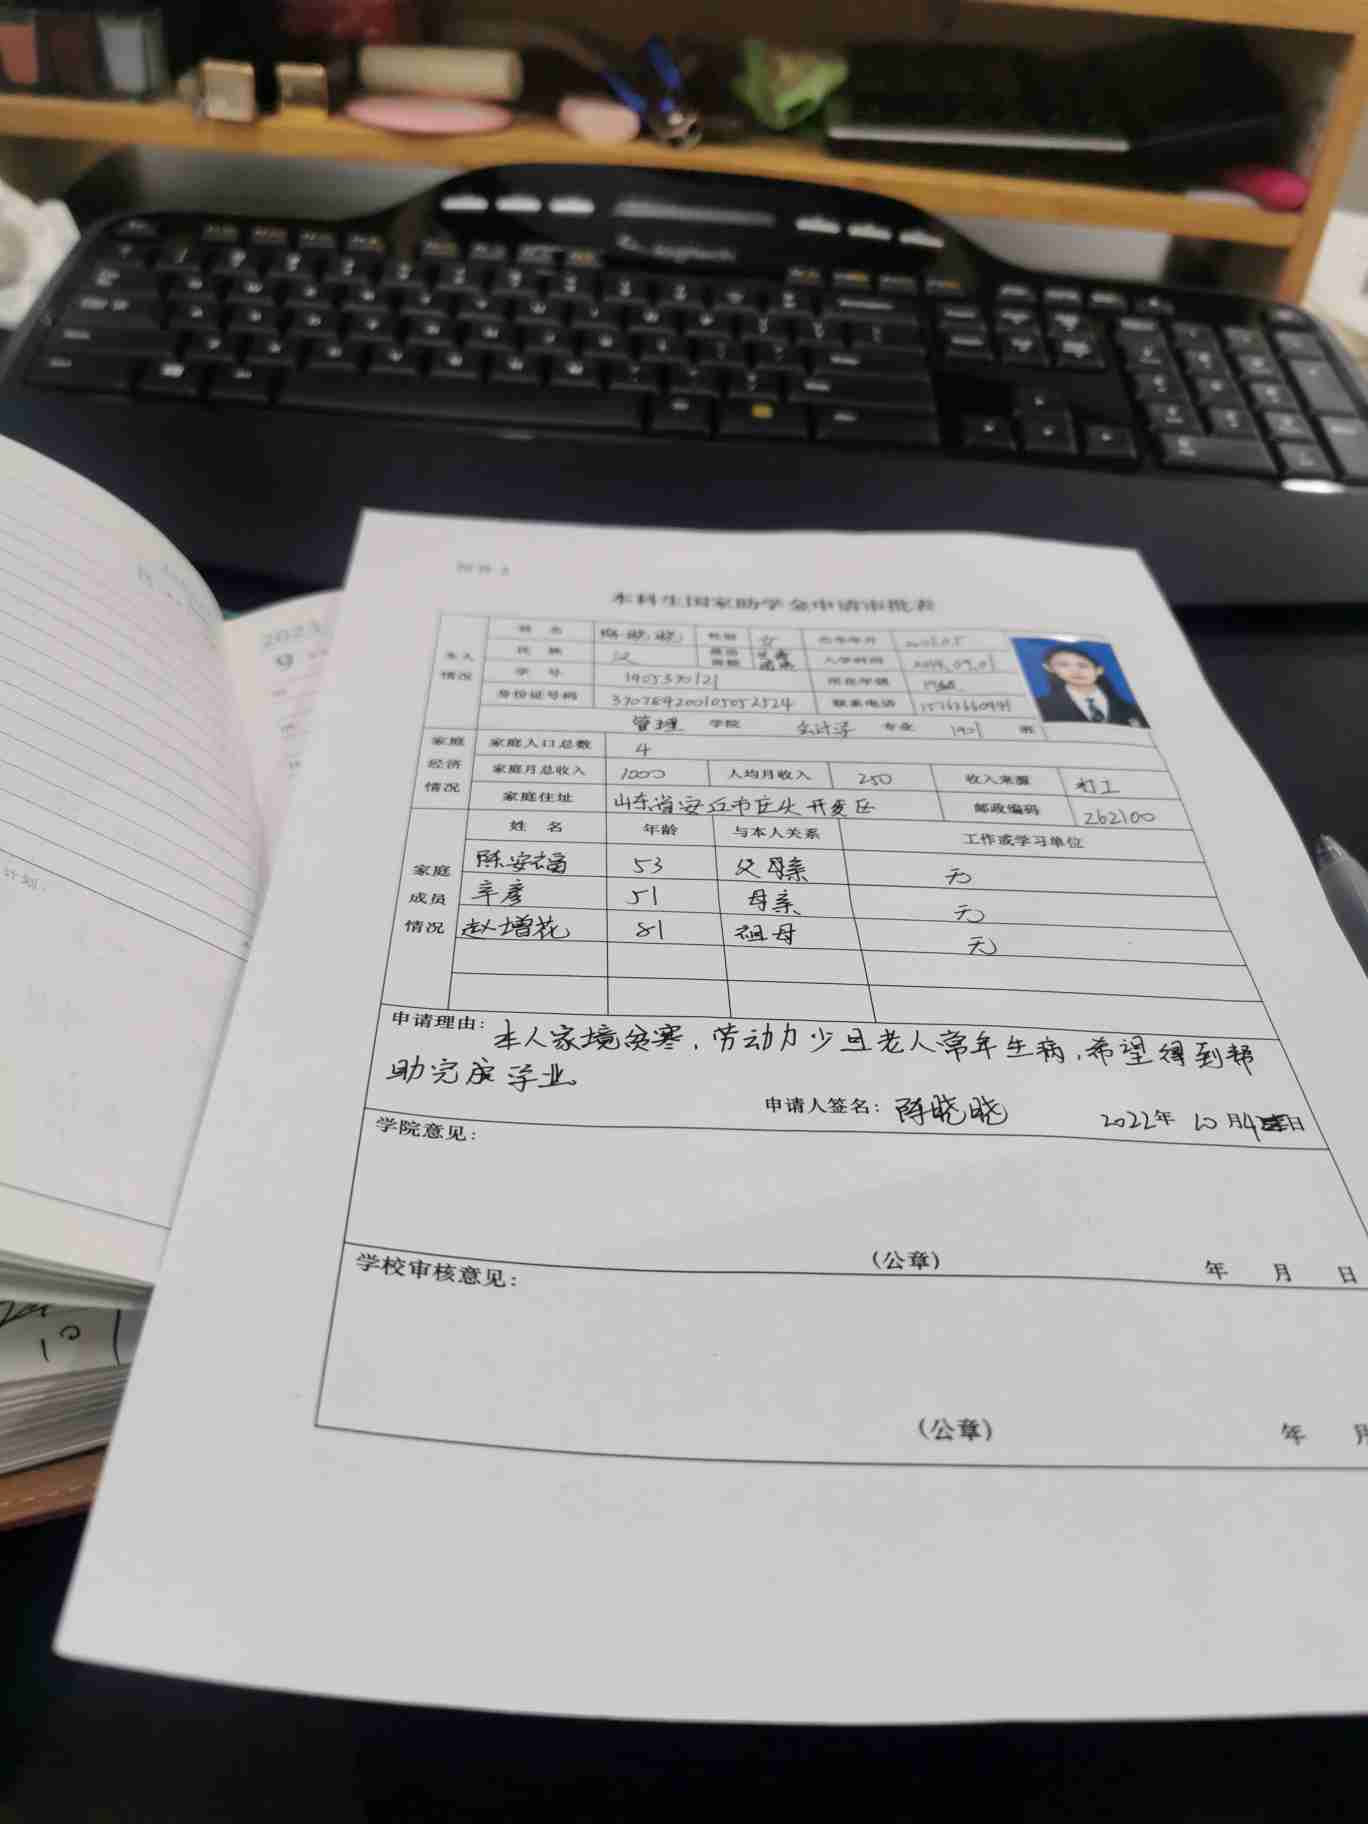 本科生国家助学金申请审批表
本人 情况 姓 名 陈晓晓 性别 女 出生年月
民 族 汉 政治面貌 入学时间 2019.09.01
学 号 1905370121 所在年级
身份证号码 联系电话
管理 学院 会计学 专业 1901 班
家庭 经济 情况 家庭人口总数 4
家庭月总收入 1000 人均月收入 250 收入来源 打工
家庭住址 山东省安丘市庄头开发区 邮政编码 262100
家庭 成员 情况 姓 名 年龄 与本人关系 工作或学习单位
陈安福 53 父母亲 无
辛彦 51 母亲 无
赵增花 81 祖母 无
申请理由: 本人家境贫寒,劳动力少且老人常年生病,希望得到帮
助完成学业。
申请人签名: 陈晓晓 2022年 10月4日
学院意见:
(公章) 年 月 日
学校审核意见:
(公章) 年 月
2023
9